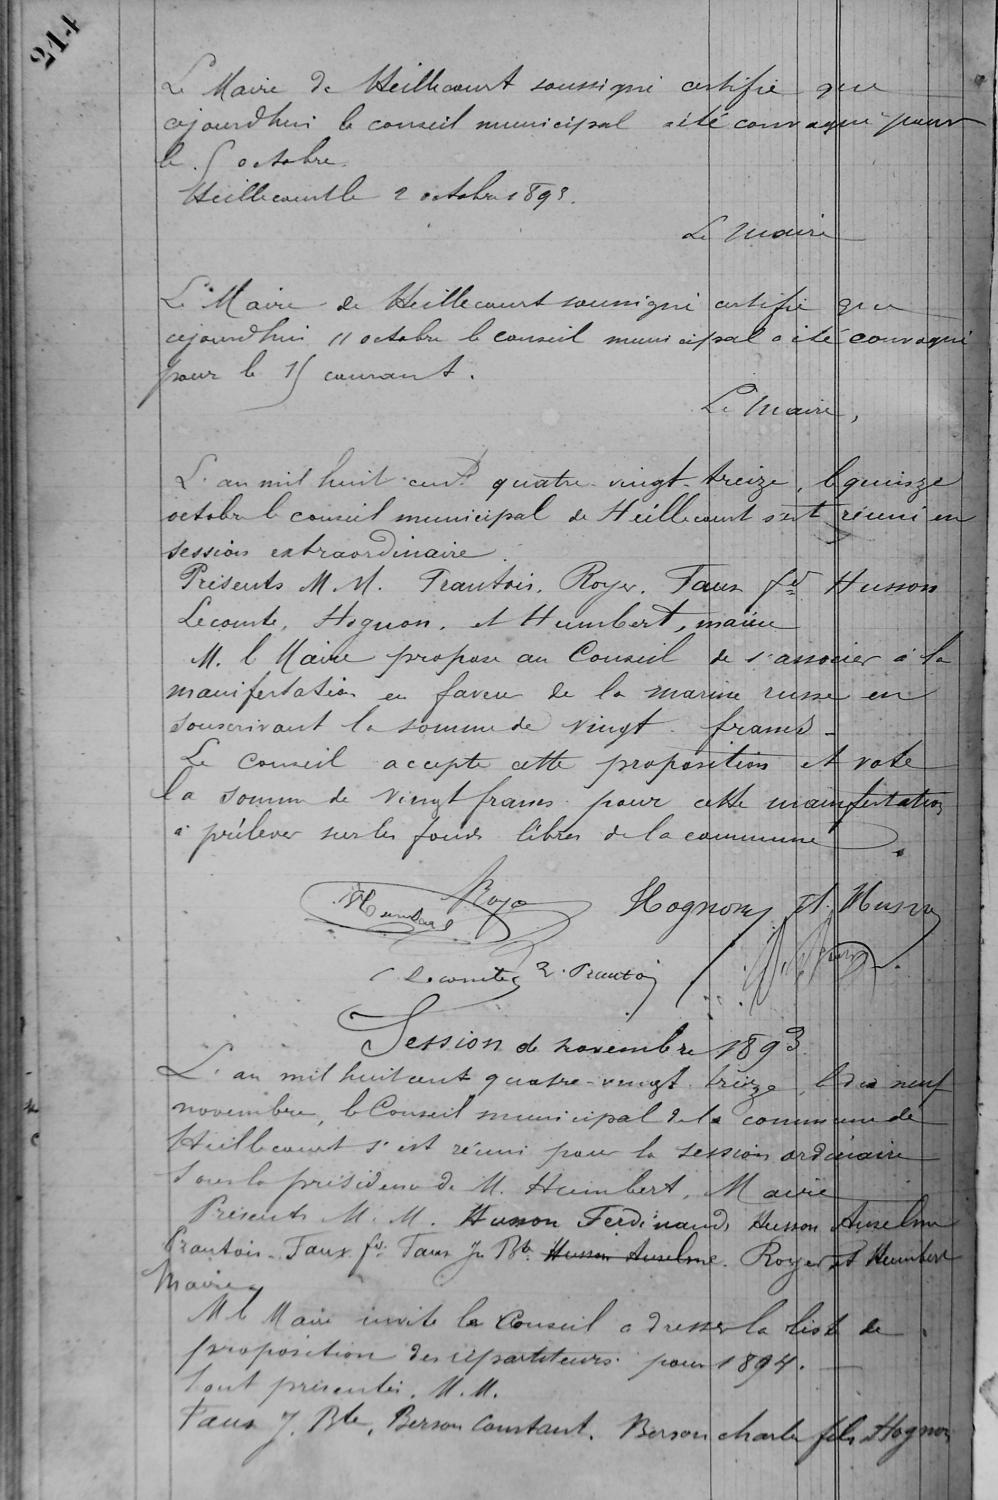 214
Le Maire de Heillecourt soussigné certifie que
ajourdhui le conseil municipal a été convoqué pour
le 5 octobre.
Heillecourt le 2 octobre 1893.
Le Maire
Le Maire de Heillecourt soussigné certifie que
ajourdhui 11 octobre le conseil municipal a été convoqué
pour le 15 courant.
Le Maire,
L'an mil huit cent quatre-vingt-treize, le quinze
octobre le conseil municipal de Heillecourt s'est réuni en
session extraordinaire.
Présents M.M. Frantois, Royer, Faux fd Husson
Lecomte, Hognon, et Humbert, maire
M. le Maire propose au Conseil de s'associer à la
manifestation en faveur de la marine russe en
souscrivant la somme de vingt francs -
Le Conseil accepte cette proposition et vote
la somme de vingt francs pour cette manifestation
à prélever sur les fonds libres de la commune.
Humbert Royer Hognon A. Husson
Lecomte Frantois
Session de novembre 1893
L'an mil huit cent quatre-vingt treize, le dix neuf
novembre, le Conseil municipal de la commune de
Heillecourt s'est réuni pour la session ordinaire
sous la présidence de M. Humbert, Maire
Présents M.M. Husson Ferdinand, Husson Anselme
Frantois - Faux fd. Faux Jn Bte. Husson Anselme. Royer et Humbert
Maire
M le Maire invite le Conseil a dresser la liste de
proposition des répartiteurs pour 1894.
Sont présentés, M.M.
Faux J. Bte, Berson Constant, Berson charle fils Hognon